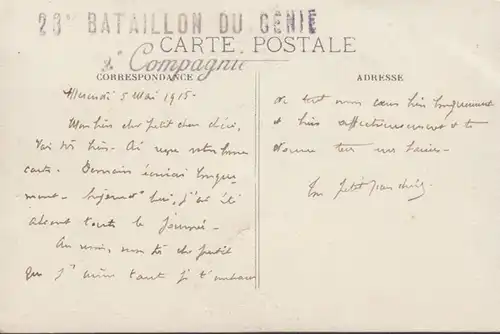 28e BATAILLON DU GÉNIE
CARTE POSTALE
2e Compagnie
CORRESPONDANCE
ADRESSE
Mercredi 5 Mai 1915-
Mon bien cher petit chou chéri,
Ai reçu votre bonne
carte. Demain écrirai longue
ment - Aujourd'hui, j'ai été
absent toute la journée -
Au revoir, mon cher petit
que j'aime tant je t'embrasse
de tout mon cœur bien longuement
et bien affectueusement et te
donne tous mes baisers -
Ton petit Jean chéri